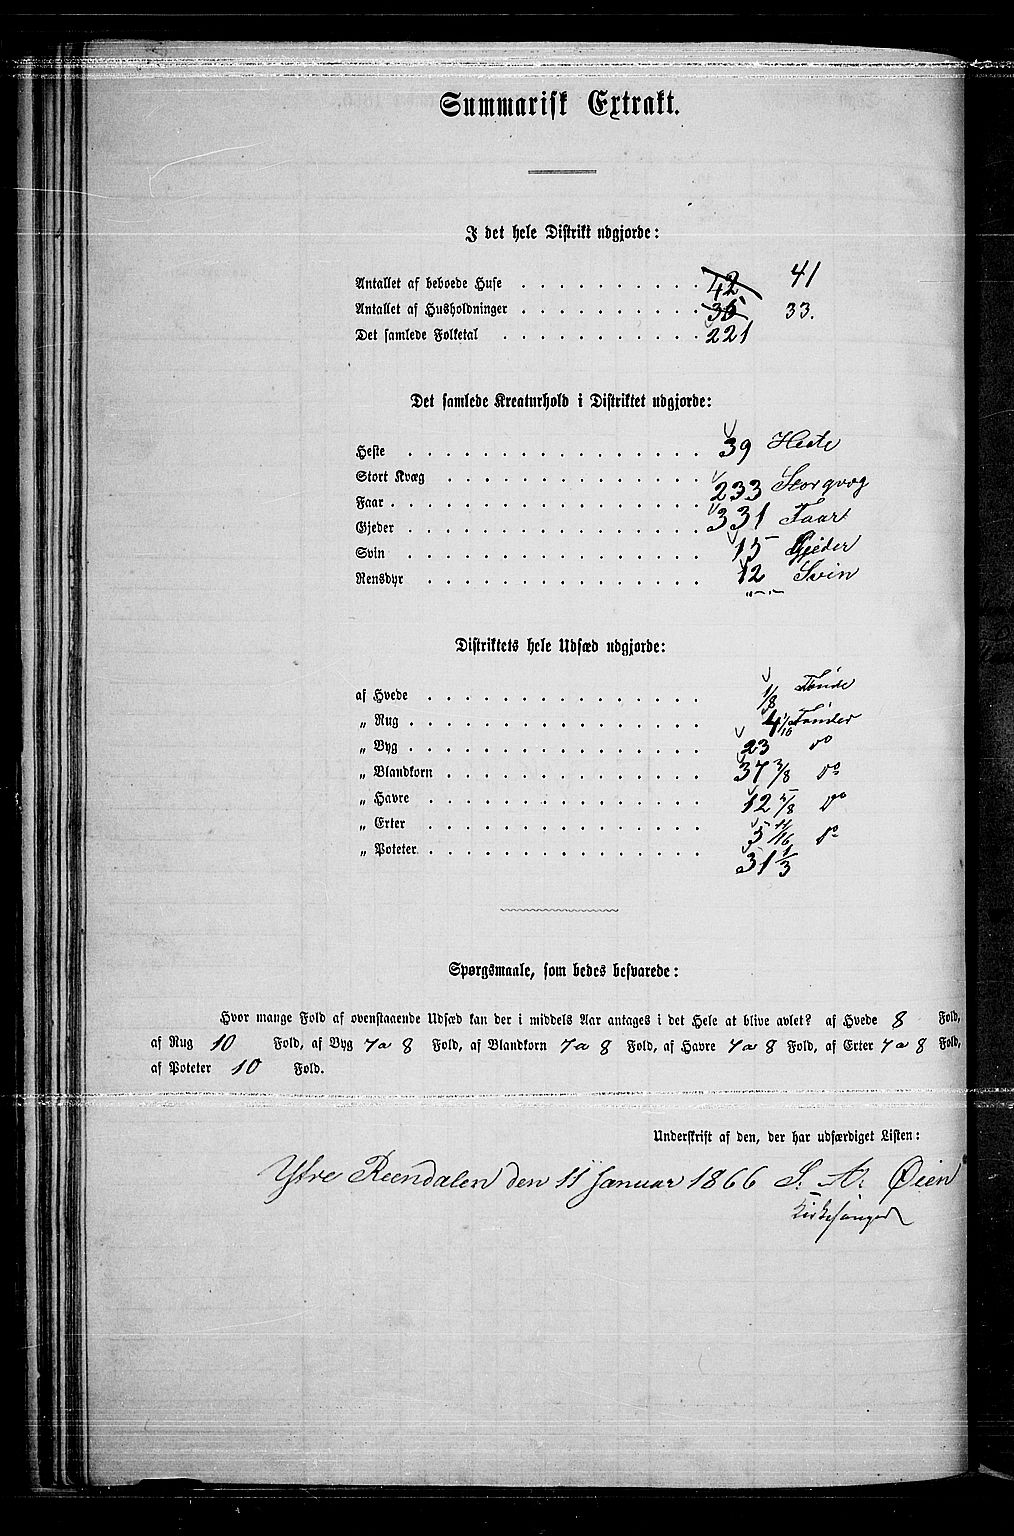 Summarisk Extrakt.
I det hele Distrikt udgjorde:
Antallet af beboede Huse . . . . . . . . . . 42 41
Antallet af Husholdninger . . . . . . . . . . 35 33.
Det samlede Folketal . . . . . . . . . . . 221
Det samlede Kreaturhold i Distriktet udgjorde:
Heste . . . . . . . . . . . . . . . 39 Heste
Stort Kvæg . . . . . . . . . . . . . 233 Storqvæg
Faar . . . . . . . . . . . . . . . . 331 Faar
Gjeder . . . . . . . . . . . . . . . 15 Gjeder
Svin . . . . . . . . . . . . . . . 12 Svin
Rensdyr . . . . . . . . . . . . . . „ — „ —
Distriktets hele Udsæd udgjorde:
af Hvede . . . . . . . . . . . . . . 1/8 Tønde
„ Rug . . . . . . . . . . . . . . . 4 1/16 Tønder
„ Byg . . . . . . . . . . . . . . . 23 do
„ Blandkorn . . . . . . . . . . . . . 37 3/8 do
„ Havre . . . . . . . . . . . . . . 12 5/8 do
„ Erter . . . . . . . . . . . . . . 5 11/16 do
„ Poteter . . . . . . . . . . . . . . 31 1/3
Spørgsmaale, som bedes besvarede:
Hvor mange Fold af ovenstaaende Udsæd kan der i middels Aar antages i det Hele at blive avlet? af Hvede 8 Fold,
af Rug 10 Fold, af Byg 7 a 8 Fold, af Blandkorn 7 a 8 Fold, af Havre 7 a 8 Fold, af Erter 7 a 8 Fold,
af Poteter 10 Fold.
Underskrift af den, der har udfærdiget Listen:
Ytre Reendalen den 11 Januar 1866 S. A. Øien
Kirkesanger